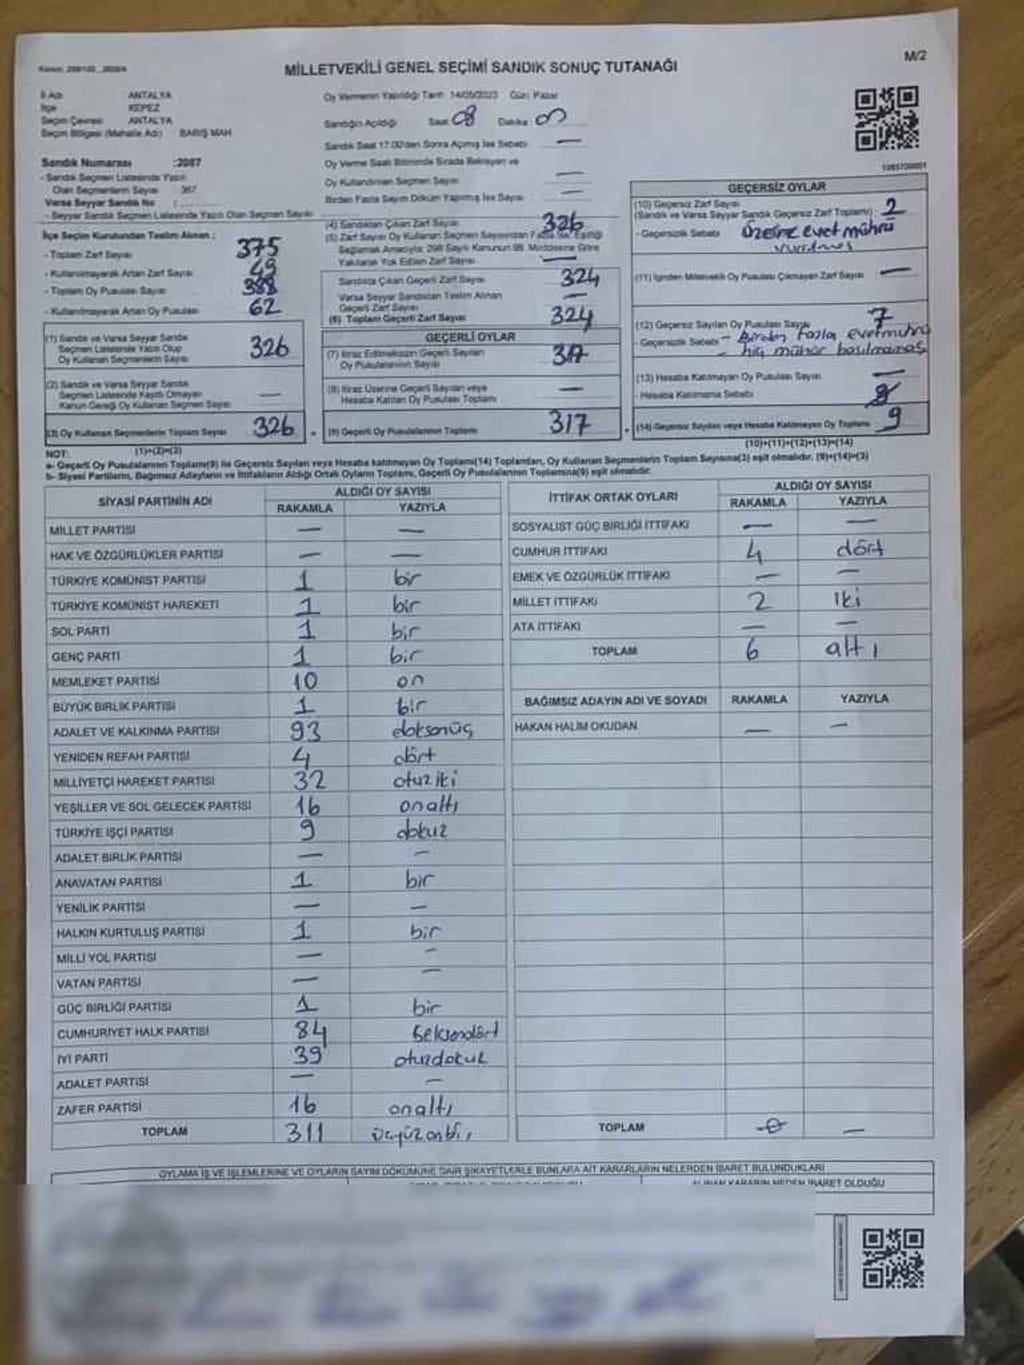 MİLLETVEKİLİ GENEL SEÇİMİ SANDIK SONUÇ TUTANAĞI
M/2
İl Adı ANTALYA
İlçe KEPEZ
Seçim Çevresi ANTALYA
Seçim Bölgesi (Mahalle Adı) BARIŞ MAH
Sandık Numarası :2087
- Sandık Seçmen Listesinde Yazılı
Olan Seçmenlerin Sayısı : 367
Varsa Seyyar Sandık No :
- Seyyar Sandık Seçmen Listesinde Yazılı Olan Seçmen Sayısı
Oy Vermenin Yapıldığı Tarih 14/05/2023 Gün: Pazar
Sandığın Açıldığı Saat 08 Dakika
Sandık Saat 17.00'den Sonra Açılmış İse Sebebi —
Oy Verme Saati Bitiminde Sırada Bekleyen ve
Oy Kullandırılan Seçmen Sayısı —
Birden Fazla Sayım Döküm Yapılmış İse Sayısı —
İlçe Seçim Kurulundan Teslim Alınan ;
- Toplam Zarf Sayısı 375
- Kullanılmayarak Artan Zarf Sayısı 49
- Toplam Oy Pusulası Sayısı 388
- Kullanılmayarak Artan Oy Pusulası 62
(1) Sandık ve Varsa Seyyar Sandık
Seçmen Listesinde Yazılı Olup
Oy Kullanan Seçmenlerin Sayısı 326
(2) Sandık ve Varsa Seyyar Sandık
Seçmen Listesinde Kayıtlı Olmayan
Kanun Gereği Oy Kullanan Seçmen Sayısı —
(3) Oy Kullanan Seçmenlerin Toplam Sayısı 326
(1)+(2)=(3)
(4) Sandıktan Çıkan Zarf Sayısı 326
(5) Zarf Sayısı Oy Kullanan Seçmen Sayısından Fazla İse, Eşitliği
Sağlamak Amacıyla; 298 Sayılı Kanunun 98. Maddesine Göre
Yakılarak Yok Edilen Zarf Sayısı —
Sandıkta Çıkan Geçerli Zarf Sayısı 324
Varsa Seyyar Sandıktan Teslim Alınan
Geçerli Zarf Sayısı —
(6) Toplam Geçerli Zarf Sayısı 324
GEÇERLİ OYLAR
(7) İtiraz Edilmeksizin Geçerli Sayılan
Oy Pusulalarının Sayısı 317
(8) İtiraz Üzerine Geçerli Sayılan veya
Hesaba Katılan Oy Pusulası Toplamı —
(9) Geçerli Oy Pusulalarının Toplamı 317
GEÇERSİZ OYLAR
(10) Geçersiz Zarf Sayısı
(Sandık ve Varsa Seyyar Sandık Geçersiz Zarf Toplamı) : 2
- Geçersizlik Sebebi üzerine evet mührü
vurulmuş
(11) İçinden Milletvekili Oy Pusulası Çıkmayan Zarf Sayısı —
(12) Geçersiz Sayılan Oy Pusulası Sayısı 7
- Geçersizlik Sebebi - Birden fazla evet mührü
- hiç mühür basılmamış
(13) Hesaba Katılmayan Oy Pusulası Sayısı —
- Hesaba Katılmama Sebebi
(14) Geçersiz Sayılan veya Hesaba Katılmayan Oy Toplamı 9
(10)+(11)+(12)+(13)=(14)
NOT:
a- Geçerli Oy Pusulalarının Toplamı(9) ile Geçersiz Sayılan veya Hesaba katılmayan Oy Toplamı(14) Toplamları, Oy Kullanan Seçmenlerin Toplam Sayısına(3) eşit olmalıdır. (9)+(14)=(3)
b- Siyasi Partilerin, Bağımsız Adayların ve İttifakların Aldığı Ortak Oyların Toplamı, Geçerli Oy Pusulalarının Toplamına(9) eşit olmalıdır.
SİYASİ PARTİNİN ADI ALDIĞI OY SAYISI
RAKAMLA YAZIYLA
MİLLET PARTİSİ — —
HAK VE ÖZGÜRLÜKLER PARTİSİ — —
TÜRKİYE KOMÜNİST PARTİSİ 1 bir
TÜRKİYE KOMÜNİST HAREKETİ 1 bir
SOL PARTİ 1 bir
GENÇ PARTİ 1 bir
MEMLEKET PARTİSİ 10 on
BÜYÜK BİRLİK PARTİSİ 1 bir
ADALET VE KALKINMA PARTİSİ 93 doksanüç
YENİDEN REFAH PARTİSİ 4 dört
MİLLİYETÇİ HAREKET PARTİSİ 32 otuziki
YEŞİLLER VE SOL GELECEK PARTİSİ 16 onaltı
TÜRKİYE İŞÇİ PARTİSİ 9 dokuz
ADALET BİRLİK PARTİSİ — —
ANAVATAN PARTİSİ 1 bir
YENİLİK PARTİSİ — —
HALKIN KURTULUŞ PARTİSİ 1 bir
MİLLİ YOL PARTİSİ — —
VATAN PARTİSİ — —
GÜÇ BİRLİĞİ PARTİSİ 1 bir
CUMHURİYET HALK PARTİSİ 84 seksendört
İYİ PARTİ 39 otuzdokuz
ADALET PARTİSİ — —
ZAFER PARTİSİ 16 onaltı
TOPLAM 311 üçyüzonbir
İTTİFAK ORTAK OYLARI ALDIĞI OY SAYISI
RAKAMLA YAZIYLA
SOSYALİST GÜÇ BİRLİĞİ İTTİFAKI — —
CUMHUR İTTİFAKI 4 dört
EMEK VE ÖZGÜRLÜK İTTİFAKI — —
MİLLET İTTİFAKI 2 iki
ATA İTTİFAKI — —
TOPLAM 6 altı
BAĞIMSIZ ADAYIN ADI VE SOYADI RAKAMLA YAZIYLA
HAKAN HALİM OKUDAN — —
TOPLAM 0 —
OYLAMA İŞ VE İŞLEMLERİNE VE OYLARIN SAYIM DÖKÜMÜNE DAİR ŞİKAYETLERLE BUNLARA AİT KARARLARIN NELERDEN İBARET BULUNDUKLARI
ALINAN KARARIN NEDEN İBARET OLDUĞU